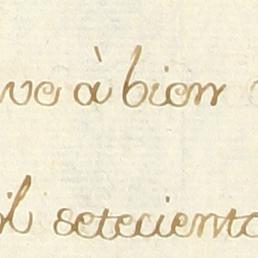 ve à bien
il setecient